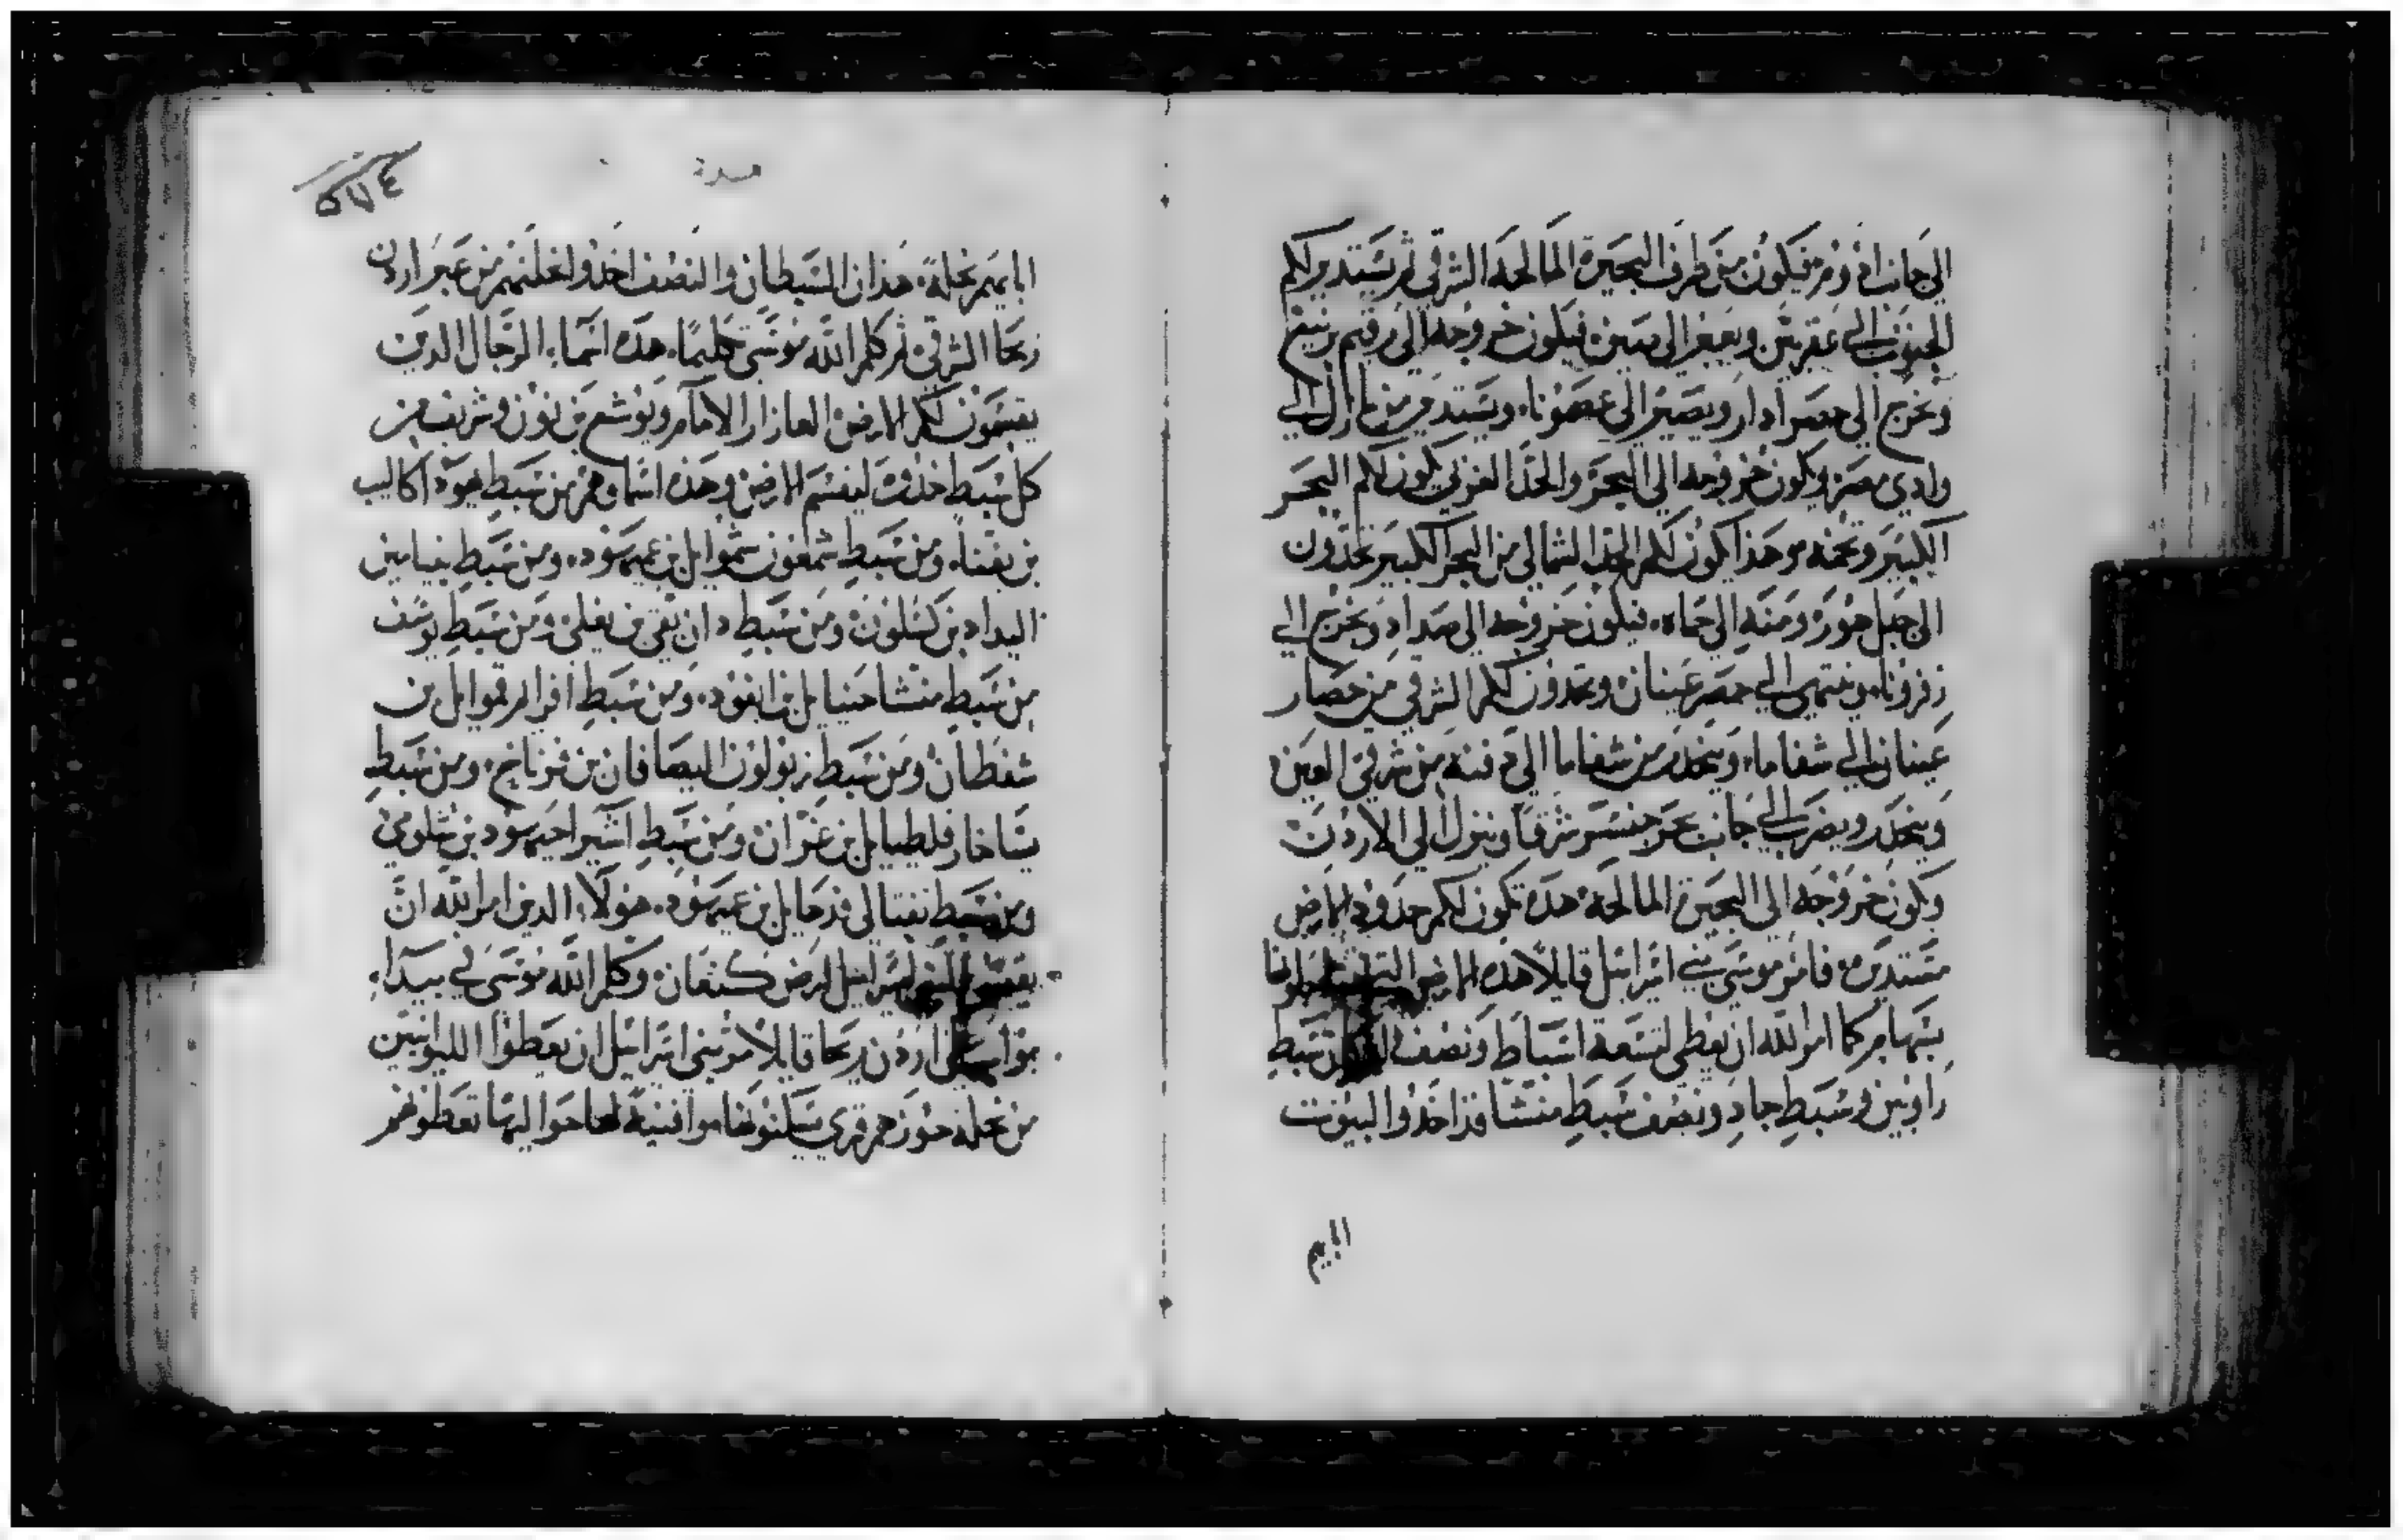 الى جانب ادوم فيكون من طرف البحيرة المالحة الشرقي ثم يستدير لكم
الجنوب الى عقربين ويعبر الى صين فيكون خروجه الى رقيم برنيع
ويخرج الى حصر ادار ويصير الى عصمونا. ويستدير من
وادي مصر ويكون خروجه الى البحر والحد الغربي يكون لكم البحر
الكبير وتخمه وهذا يكون لكم الحد الشمالي من البحر الكبير تحدون
الى جبل هور ومنه الى حماه. فيكون خروجه الى صداد ويخرج الى
زفرونا. وينتهي الى حصر عينان وتحدون لكم الشرقي من حصار
عينان الى شفاما. وينحدر من شفاما الى دفنه من شرقي العين
وينحدر ويضرب الى جانب بحر جنسر شرقا وينزل الى الاردن
ويكون خروجه الى البحيرة المالحة هذه تكون لكم حدود الارض
مستديره فامر موسى بني اسرائيل قايلا هذه الارض التي
بسهام كما امر الله ان يعطى لتسعة اسباط ونصف سبط
راوبين وسبط جاد ونصف سبط منشا قد اخذوا البيوت
ابايهم
٥٧٤
ابايهم نحلة. هذان السبطان والنصف اخذوا نحلتهم من عبر اردن
ريحا الشرقي ثم كلم الله موسى تكليما. هذه اسماء الرجال الذين
يقسمون لكم الارض العازار الامام ويوشع بن نون وشريف من
كل سبط خذوه ليقسم الارض وهذه اسماوهم من سبط يهودا كاليب
بن يفنا. ومن سبط شمعون شموايل بن عميهود. ومن سبط بنيامين
اليداد بن كسلون ومن سبط دان بقي بن يغلي ومن سبط يوسف
من سبط منشا حنيايل بن ايفود. ومن سبط افرايم قموايل بن
شفطان ومن سبط زبولون اليصافان بن فرناخ. ومن سبط
يساخار فلطيايل بن عزان ومن سبط اشير احيهود بن شلومي
ومن سبط نفتالي فدحايل بن عميهود. هولاء الدين امر الله ان
يقسموا لبني اسراييل ارض كنعان وكلم الله موسى في بيداء
مواب على اردن ريحا قايلا مر بني اسرائيل ان يعطوا الليوانيين
من نحلة حوزهم قرى يسكنونها وافنية لها حواليها تعطونهم